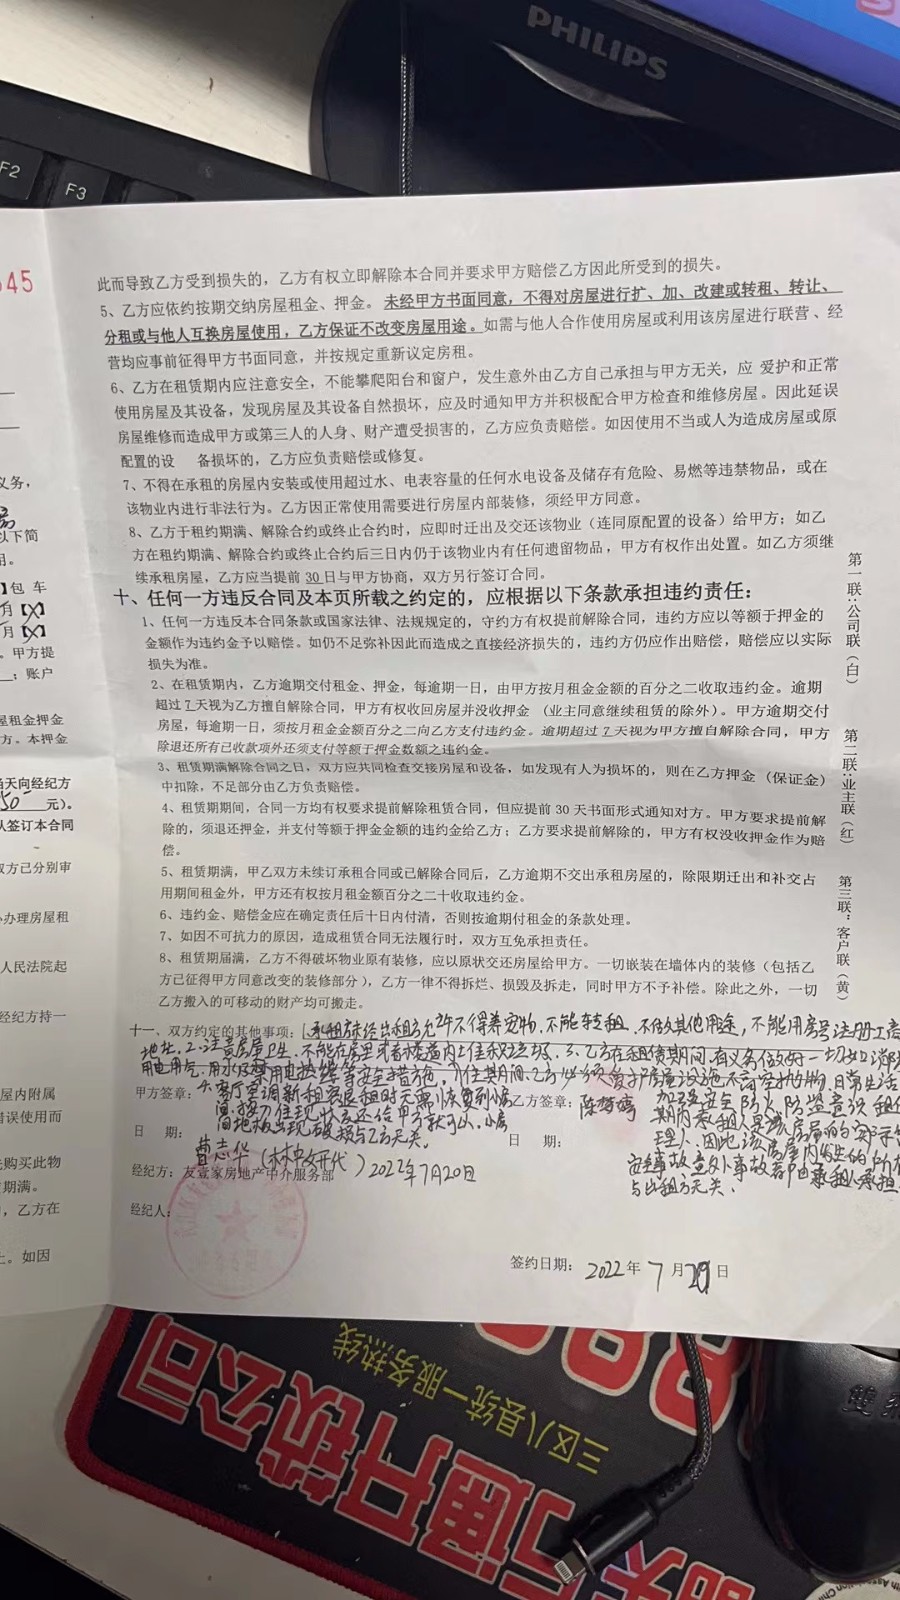 PHILIPS
F2
F3
545
此而导致乙方受到损失的，乙方有权立即解除本合同并要求甲方赔偿乙方因此所受到的损失。
5、乙方应依约按期交纳房屋租金、押金。未经甲方书面同意，不得对房屋进行扩、加、改建或转租、转让、
分租或与他人互换房屋使用，乙方保证不改变房屋用途。如需与他人合作使用房屋或利用该房屋进行联营、经
营均应事前征得甲方书面同意，并按规定重新议定房租。
6、乙方在租赁期内应注意安全，不能攀爬阳台和窗户，发生意外由乙方自己承担与甲方无关，应 爱护和正常
使用房屋及其设备，发现房屋及其设备自然损坏，应及时通知甲方并积极配合甲方检查和维修房屋。因此延误
房屋维修而造成甲方或第三人的人身、财产遭受损害的，乙方应负责赔偿。如因使用不当或人为造成房屋或原
配置的设 备损坏的，乙方应负责赔偿或修复。
7、不得在承租的房屋内安装或使用超过水、电表容量的任何水电设备及储存有危险、易燃等违禁物品，或在
该物业内进行非法行为。乙方因正常使用需要进行房屋内部装修，须经甲方同意。
8、乙方于租约期满、解除合约或终止合约时，应即时迁出及交还该物业（连同原配置的设备）给甲方；如乙
方在租约期满、解除合约或终止合约后三日内仍于该物业内有任何遗留物品，甲方有权作出处置。如乙方须继
续承租房屋，乙方应当提前30日与甲方协商，双方另行签订合同。
十、任何一方违反合同及本页所载之约定的，应根据以下条款承担违约责任：
1、任何一方违反本合同条款或国家法律、法规规定的，守约方有权提前解除合同，违约方应以等额于押金的
金额作为违约金予以赔偿。如仍不足弥补因此而造成之直接经济损失的，违约方仍应作出赔偿，赔偿应以实际
损失为准。
2、在租赁期内，乙方逾期交付租金、押金，每逾期一日，由甲方按月租金金额的百分之二收取违约金。逾期
超过7天视为乙方擅自解除合同，甲方有权收回房屋并没收押金（业主同意继续租赁的除外）。甲方逾期交付
房屋，每逾期一日，须按月租金金额百分之二向乙方支付违约金。逾期超过7天视为甲方擅自解除合同，甲方
除退还所有已收款项外还须支付等额于押金数额之违约金。
3、租赁期满解除合同之日，双方应共同检查交接房屋和设备，如发现有人为损坏的，则在乙方押金（保证金）
中扣除，不足部分由乙方负责赔偿。
4、租赁期期间，合同一方均有权要求提前解除租赁合同，但应提前30天书面形式通知对方。甲方要求提前解
除的，须退还押金，并支付等额于押金金额的违约金给乙方；乙方要求提前解除的，甲方有权没收押金作为赔
偿。
5、租赁期满，甲乙双方未续订承租合同或已解除合同后，乙方逾期不交出承租房屋的，除限期迁出和补交占
用期间租金外，甲方还有权按月租金额百分之二十收取违约金。
6、违约金、赔偿金应在确定责任后十日内付清，否则按逾期付租金的条款处理。
7、如因不可抗力的原因，造成租赁合同无法履行时，双方互免承担责任。
8、租赁届满，乙方不得破坏物业原有装修，应以原状交还房屋给甲方。一切嵌装在墙体内的装修（包括乙
方已征得甲方同意改变的装修部分），乙方一律不得拆烂、损毁及拆走，同时甲方不予补偿。除此之外，一切
乙方搬入的可移动的财产均可搬走。
十一、双方约定的其他事项：1.承租方未经出租方允许不得养宠物，不能转租，不做其他用途，不能用房号注册工商
地址。2.注意房屋卫生，不能在房里或者楼道内
3.乙方在租赁期间，有义务做好一切如消防
用电用气、用水
等安全措施，
日常生活
加强安全防火防盗意识
房屋的实际
管理人，因此该房屋内发生的所有
安全事故意外事故都由承租人承担
与出租方无关。
4.客厅空调新租客退租时无需恢复到
还给甲方就可以，
与乙方无关。
甲方签章：
乙方签章：陈
日 期：
日 期：
曹志华
2022年7月20日
经纪方：友壹家房地产中介服务部
经纪人：
签约日期：2022年7月20日
第一联：公司联（白）
第二联：业主联（红）
第三联：客户联（黄）
义务，
以下简
用。
】包 车
月【X】
月【X】
。甲方提
；账户
屋租金押金
方。本押金
当天向经纪方
50 元）。
认签订本合同
双方已分别审
办理房屋租
人民法院起
经纪方持一
屋内附属
错误使用而
先购买此物
期满。
，乙方在
上。如因
三区八县统一服务热线
通开锁公司